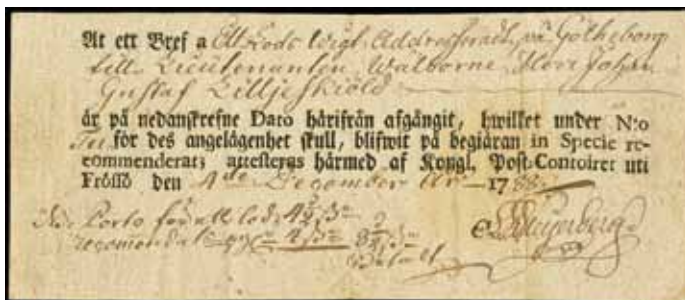 At ett Bref a Ett Lods Wigt, Addresseradt på Götheborg
till Lieutenanten Walborne Herr Johan
Gustaf Lilljeskiöld
är på nedanskrefne Dato härifrån afgångit, hwilket under N:o
för des angelägenhet skull, blifwit på begiäran in Specie re-
commenderat; attesteras härmed af Kongl. Post-Contoiret uti
Frösö den 4de December Ahr 1788
Porto för ett lod 4
recomendat 4 8
Betalt